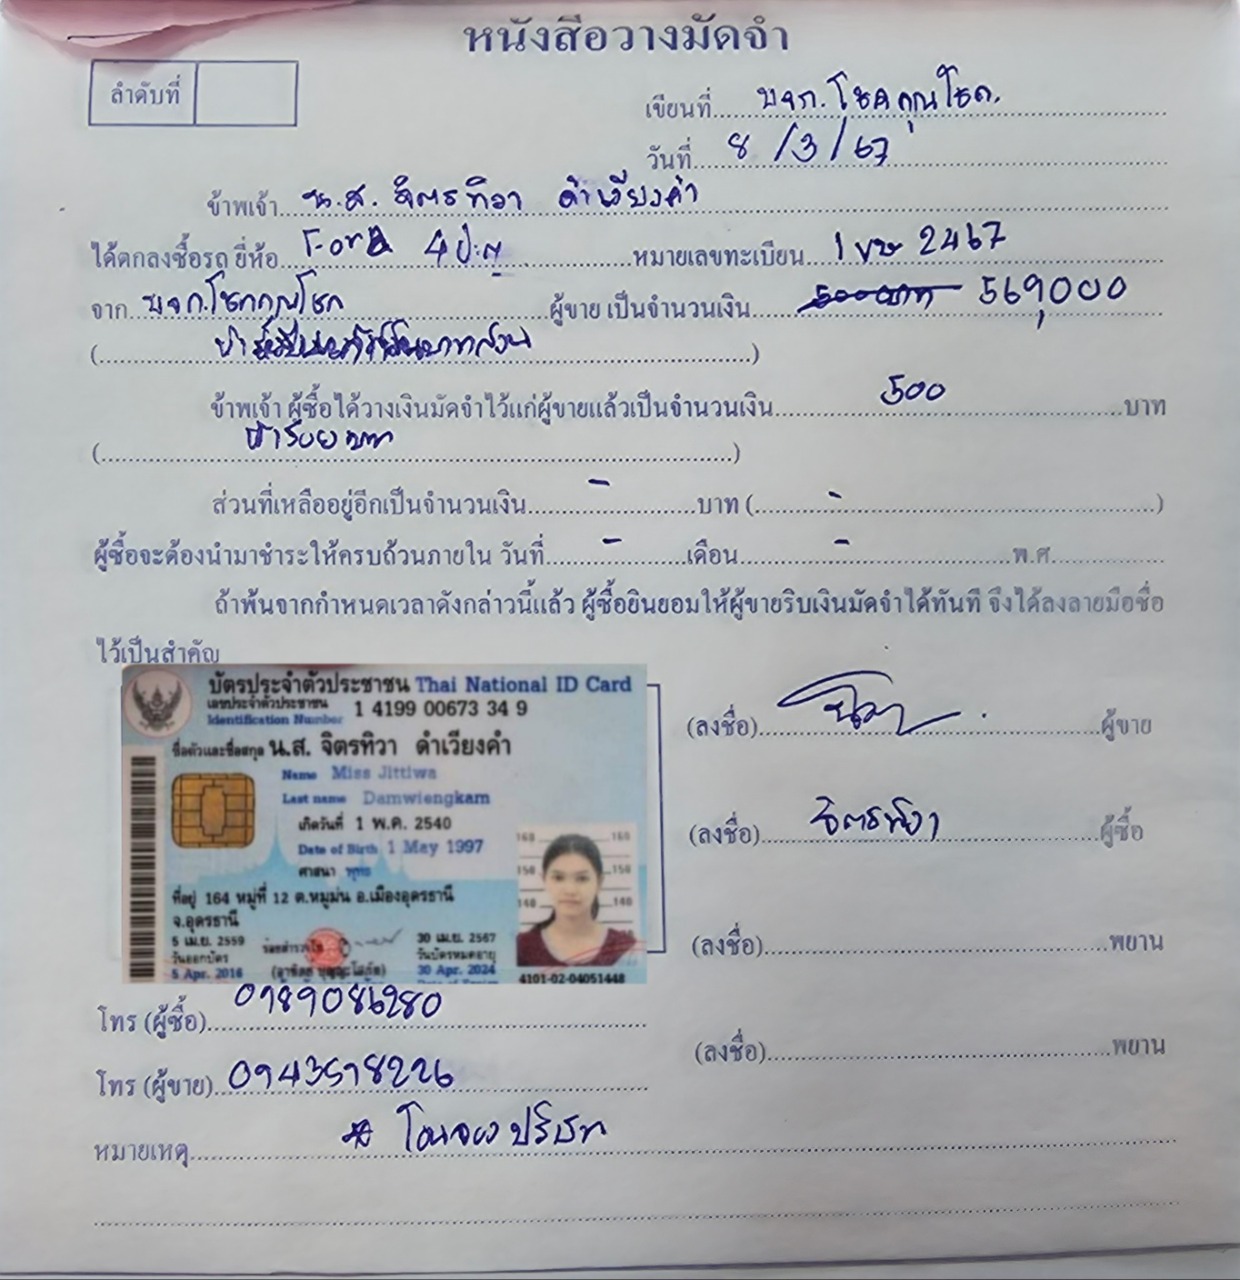 หนังสือวางมัดจำ
ลำดับที่
เขียนที่ บจก.โชคคุณโชค.
วันที่ 8/3/67
ข้าพเจ้า น.ส. จิตรทิวา ดำเวียงคำ
ได้ตกลงซื้อรถ ยี่ห้อ Ford 4ประตู หมายเลขทะเบียน 1 ขษ 2467
จาก บจก.โชคคุณโชค ผู้ขาย เป็นจำนวนเงิน 569,000
( )
ข้าพเจ้า ผู้ซื้อได้วางเงินมัดจำไว้แก่ผู้ขายแล้วเป็นจำนวนเงิน 500 บาท
(ห้าร้อยบาท)
ส่วนที่เหลืออยู่อีกเป็นจำนวนเงิน - บาท ( - )
ผู้ซื้อจะต้องนำมาชำระให้ครบถ้วนภายใน วันที่ - เดือน - พ.ศ.
ถ้าพ้นจากกำหนดเวลาดังกล่าวนี้แล้ว ผู้ซื้อยินยอมให้ผู้ขายริบเงินมัดจำได้ทันที จึงได้ลงลายมือชื่อ
ไว้เป็นสำคัญ
บัตรประจำตัวประชาชน Thai National ID Card
เลขประจำตัวประชาชน
Identification Number 1 4199 00673 34 9
ชื่อตัวและชื่อสกุล น.ส. จิตรทิวา ดำเวียงคำ
Name Miss Jittiwa
Last name Damwiengkam
เกิดวันที่ 1 พ.ค. 2540
Date of Birth 1 May 1997
ศาสนา พุทธ
ที่อยู่ 164 หมู่ที่ 12 ต.หมูม่น อ.เมืองอุดรธานี
จ.อุดรธานี
5 เม.ย. 2559
วันออกบัตร
5 Apr. 2016
30 เม.ย. 2567
วันบัตรหมดอายุ
30 Apr. 2024
160 160
150 150
140 140
4101-02-04051448
(ลงชื่อ) ผู้ขาย
(ลงชื่อ) จิตรทิวา ผู้ซื้อ
(ลงชื่อ) พยาน
(ลงชื่อ) พยาน
โทร (ผู้ซื้อ) 0989086280
โทร (ผู้ขาย) 0943598226
หมายเหตุ